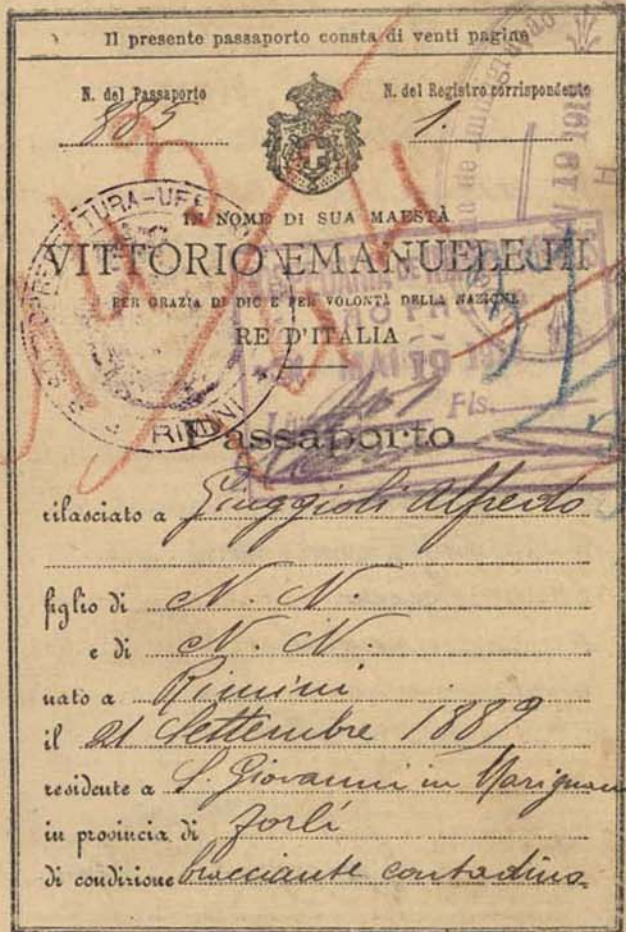 Il presente passaporto consta di venti pagine
N. del Passaporto
885
N. del Registro corrispondente
1.
IN NOME DI SUA MAESTÀ
VITTORIO EMANUELE III
PER GRAZIA DI DIO E PER VOLONTÀ DELLA NAZIONE
RE D'ITALIA
MAI 19
Fls.
RIMINI
Passaporto
rilasciato a Giuggioli Alfredo
figlio di N. N.
e di N. N.
nato a Rimini
il 21 Settembre 1889
residente a S. Giovanni in Marignano
in provincia di Forlì
di condizione bracciante contadino